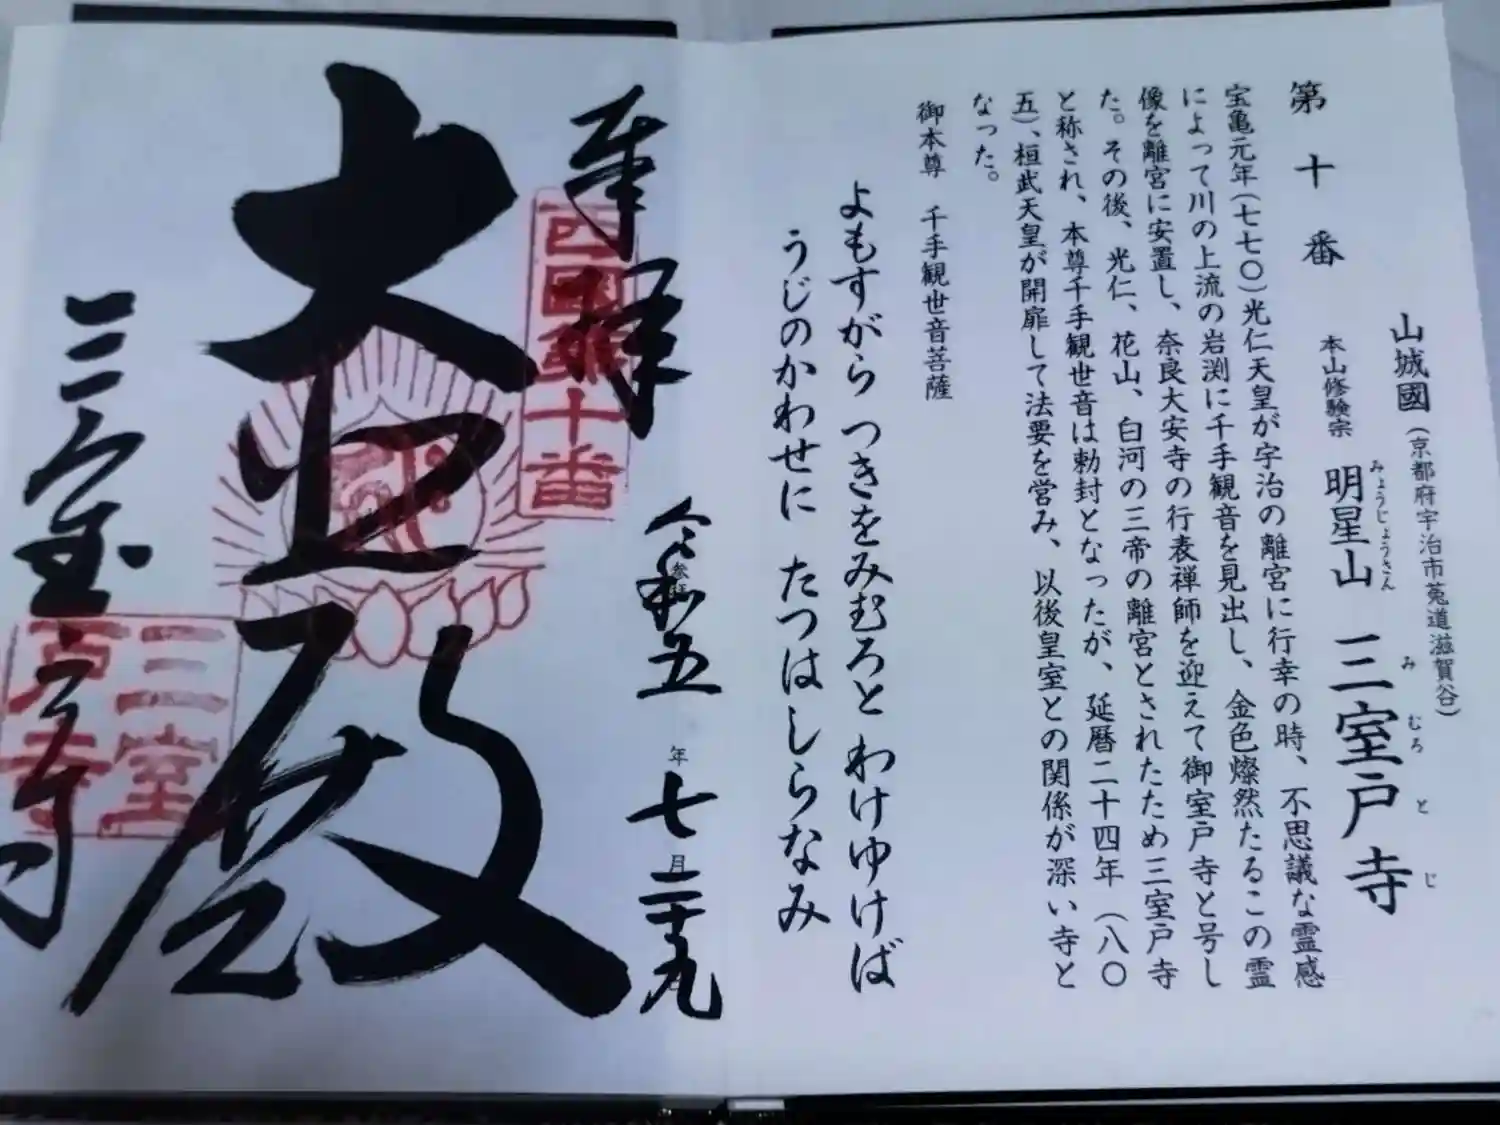 第十番
山城國(京都府宇治市菟道滋賀谷)
本山修験宗 明星山 三室戸寺
みょうじょうさん みむろとじ
宝亀元年(七七〇)光仁天皇が宇治の離宮に行幸の時、不思議な霊感
によって川の上流の岩渕に千手観音を見出し、金色燦然たるこの霊
像を離宮に安置し、奈良大安寺の行表禅師を迎えて御室戸寺と号し
た。その後、光仁、花山、白河の三帝の離宮とされたため三室戸寺
と称され、本尊千手観世音は勅封となったが、延暦二十四年(八〇
五)、桓武天皇が開扉して法要を営み、以後皇室との関係が深い寺と
なった。
御本尊 千手観世音菩薩
よもすがら つきをみむろと わけゆけば
うじのかわせに たつはしらなみ
奉拝
令和五年七月二十九
西國第十番
大悲殿
三室戸寺
三室
戸寺